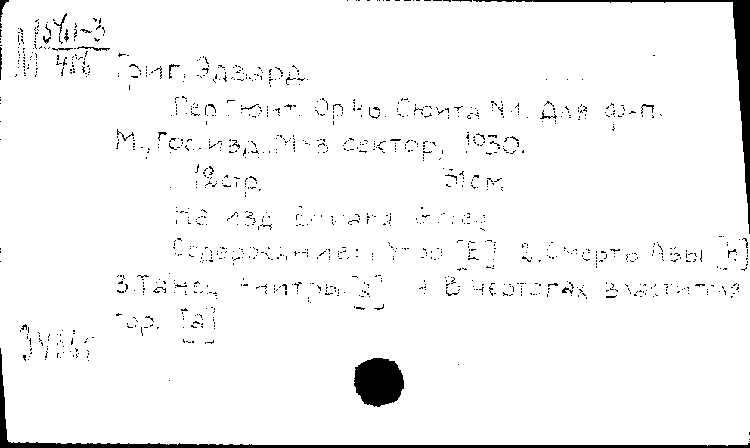 М 561-3
456
Григ, Эдвард
Пер Гюнт. Ор 46. Сюита №1. Для ф-п.
М., Гос. изд. Муз сектор, 1930.
12 стр. 31 см
На изд
Содержание: 1. Утро [E] 2. Смерть Азы [h]
3. Танец Анитры [a] 4 В чертогах властителя
гор. [a]